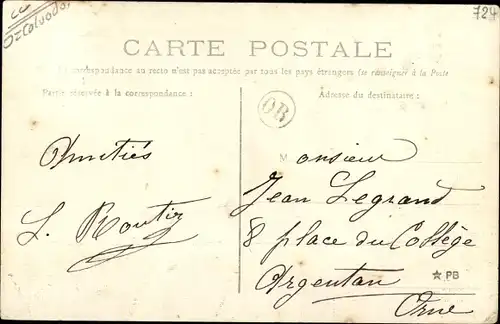 724
CARTE POSTALE
La correspondance au recto n'est pas acceptée par tous les pays étrangers (se renseigner à la Poste
Partie réservée à la correspondance :
Adresse du destinataire :
OR
Amitiés
L. Routier
Monsieur
Jean Legrand
8 place du Collège
Argentan
Orne
★ PB